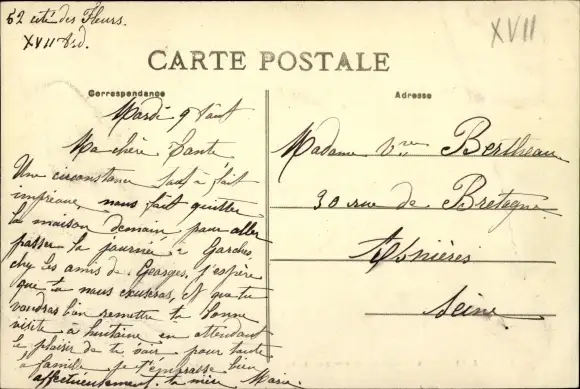 62 cité des Fleurs.
XVII
XVII
CARTE POSTALE
Correspondance
Adresse
Mardi 9 Août
Ma chère Tante
Une circonstance tout à fait
imprévue nous fait quitter
la maison demain pour aller
passer la journée à Garches
chez les amis de Georges, j'espère
que tu nous excuseras, et que tu
voudras bien remettre ta bonne
visite à huitaine en attendant
le plaisir de te voir pour toute
la famille je t'embrasse bien
affectueusement. ta nièce Marie.
Madame Vve Bertheau
30 rue de Bretagne
Asnières
Seine